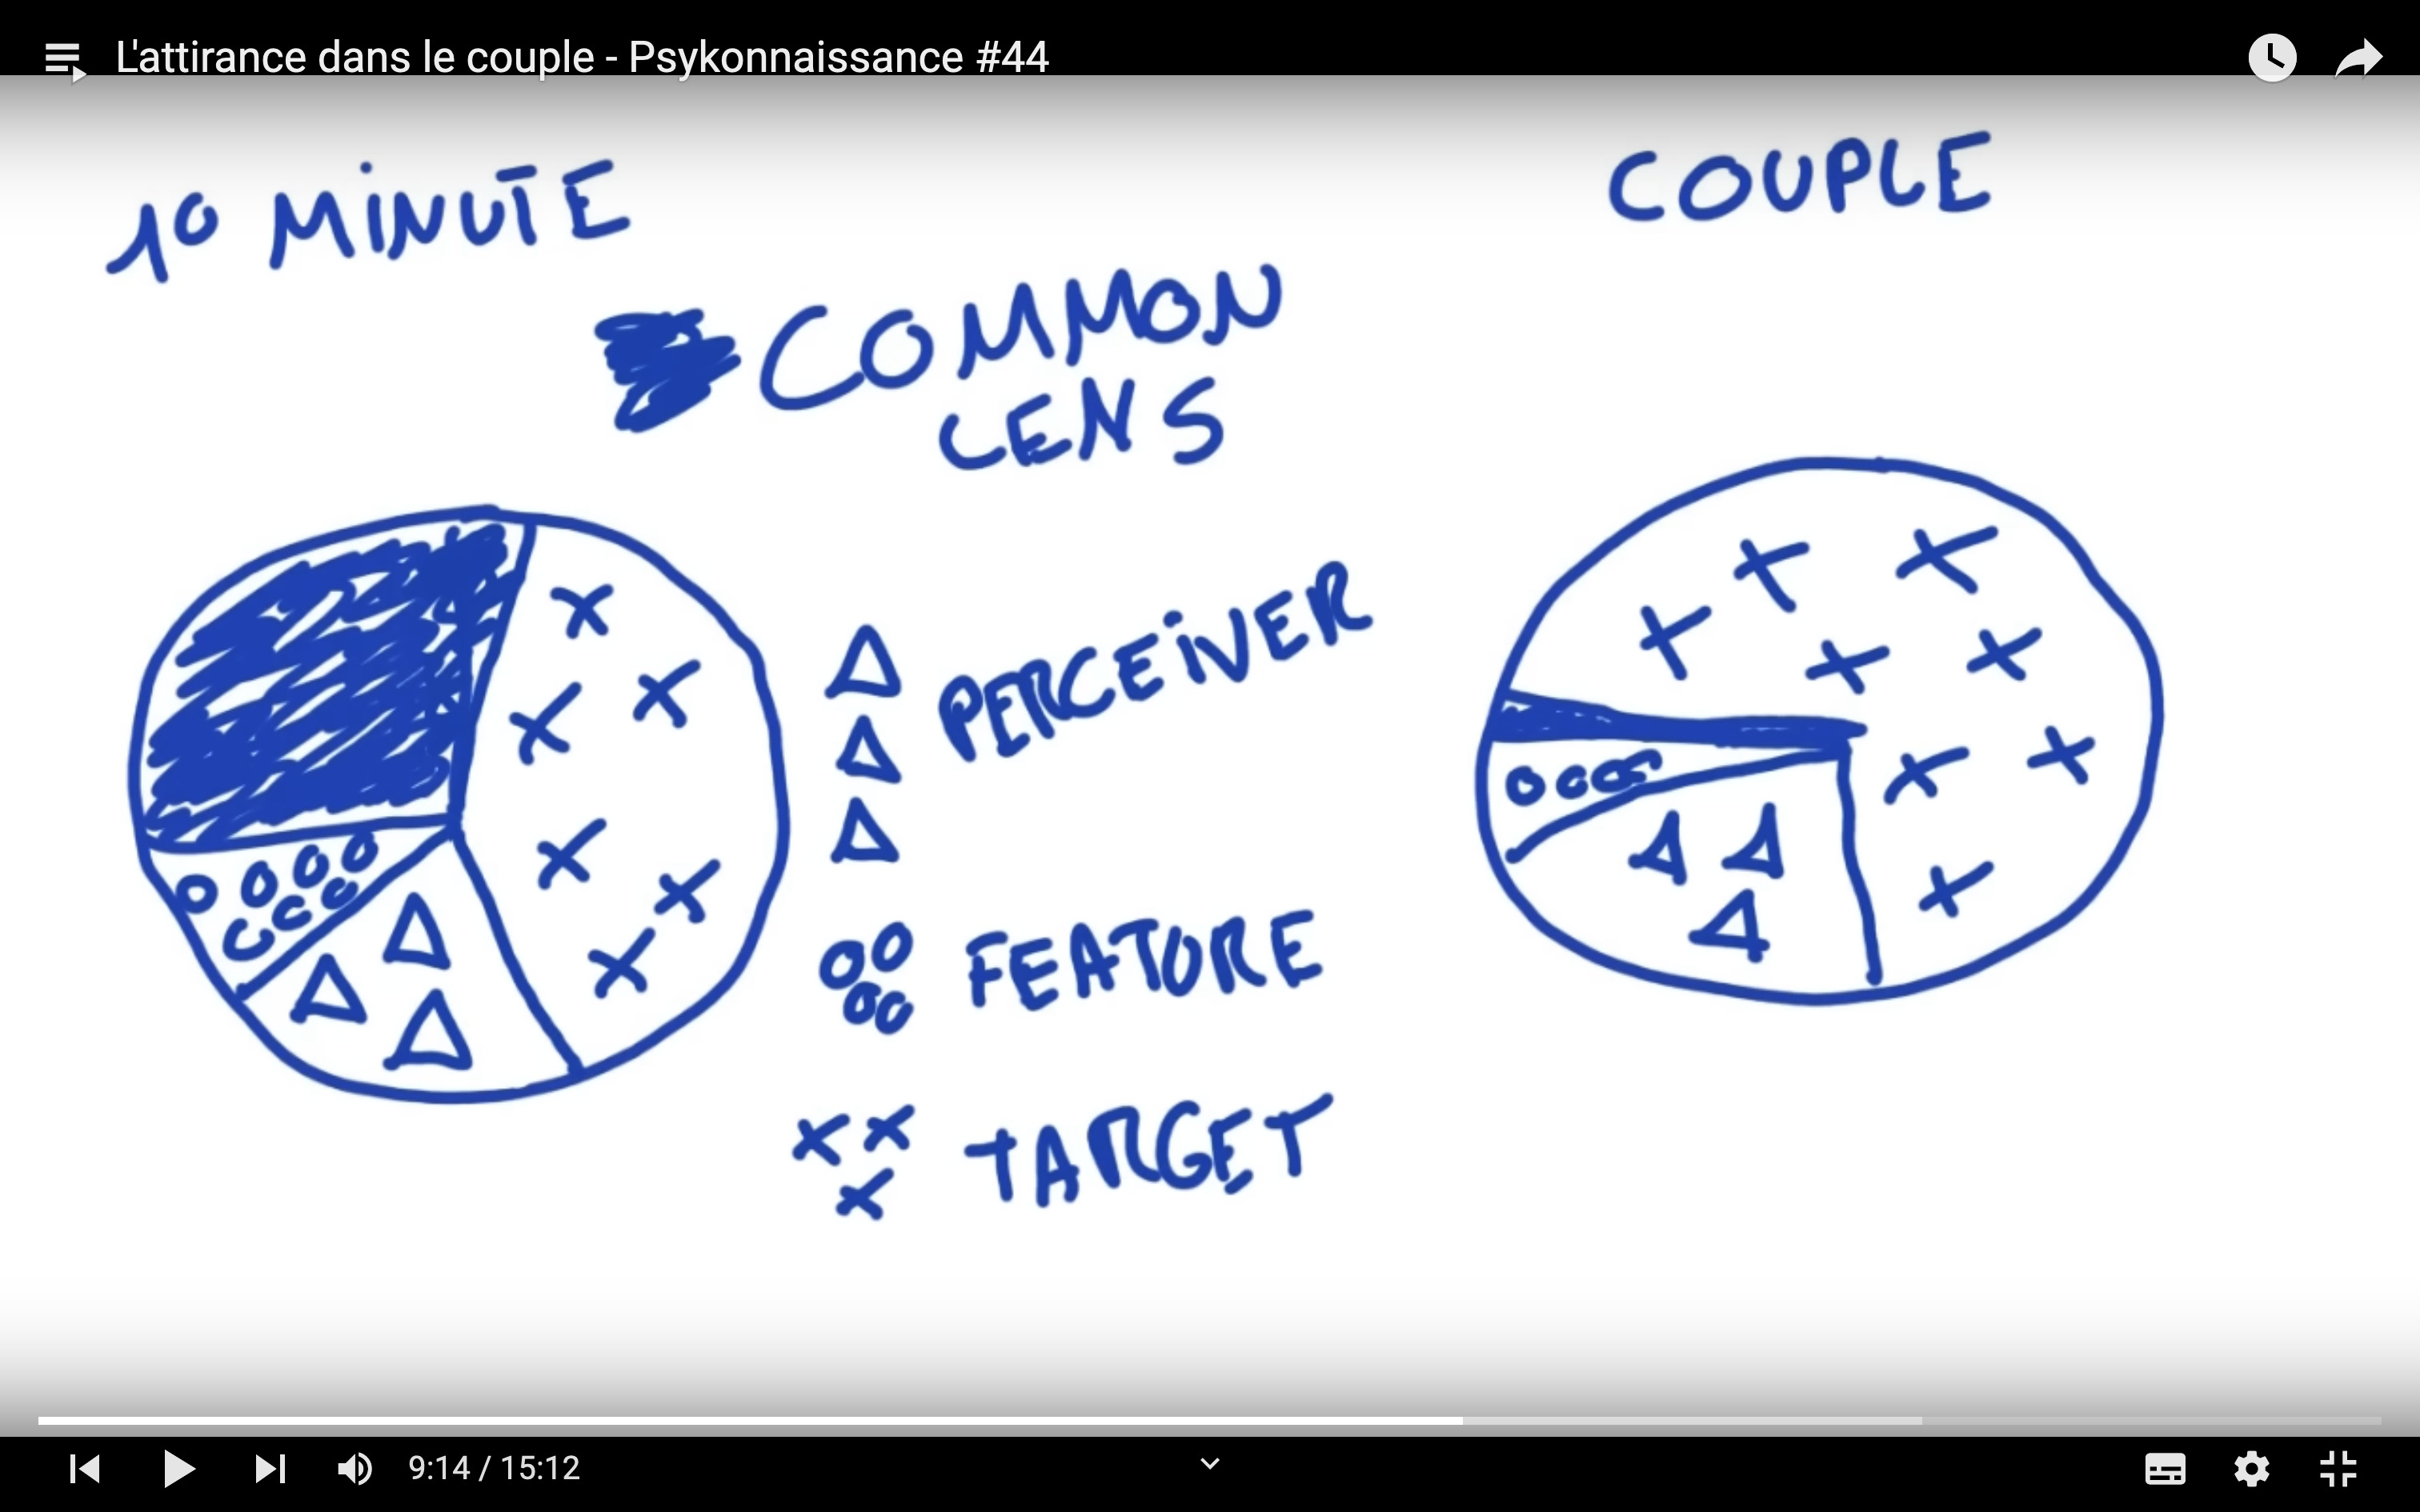 L'attirance dans le couple - Psykonnaissance #44
10 MINUTE
COUPLE
COMMON
CENS
PERCEIVER
FEATURE
TARGET
9:14 / 15:12